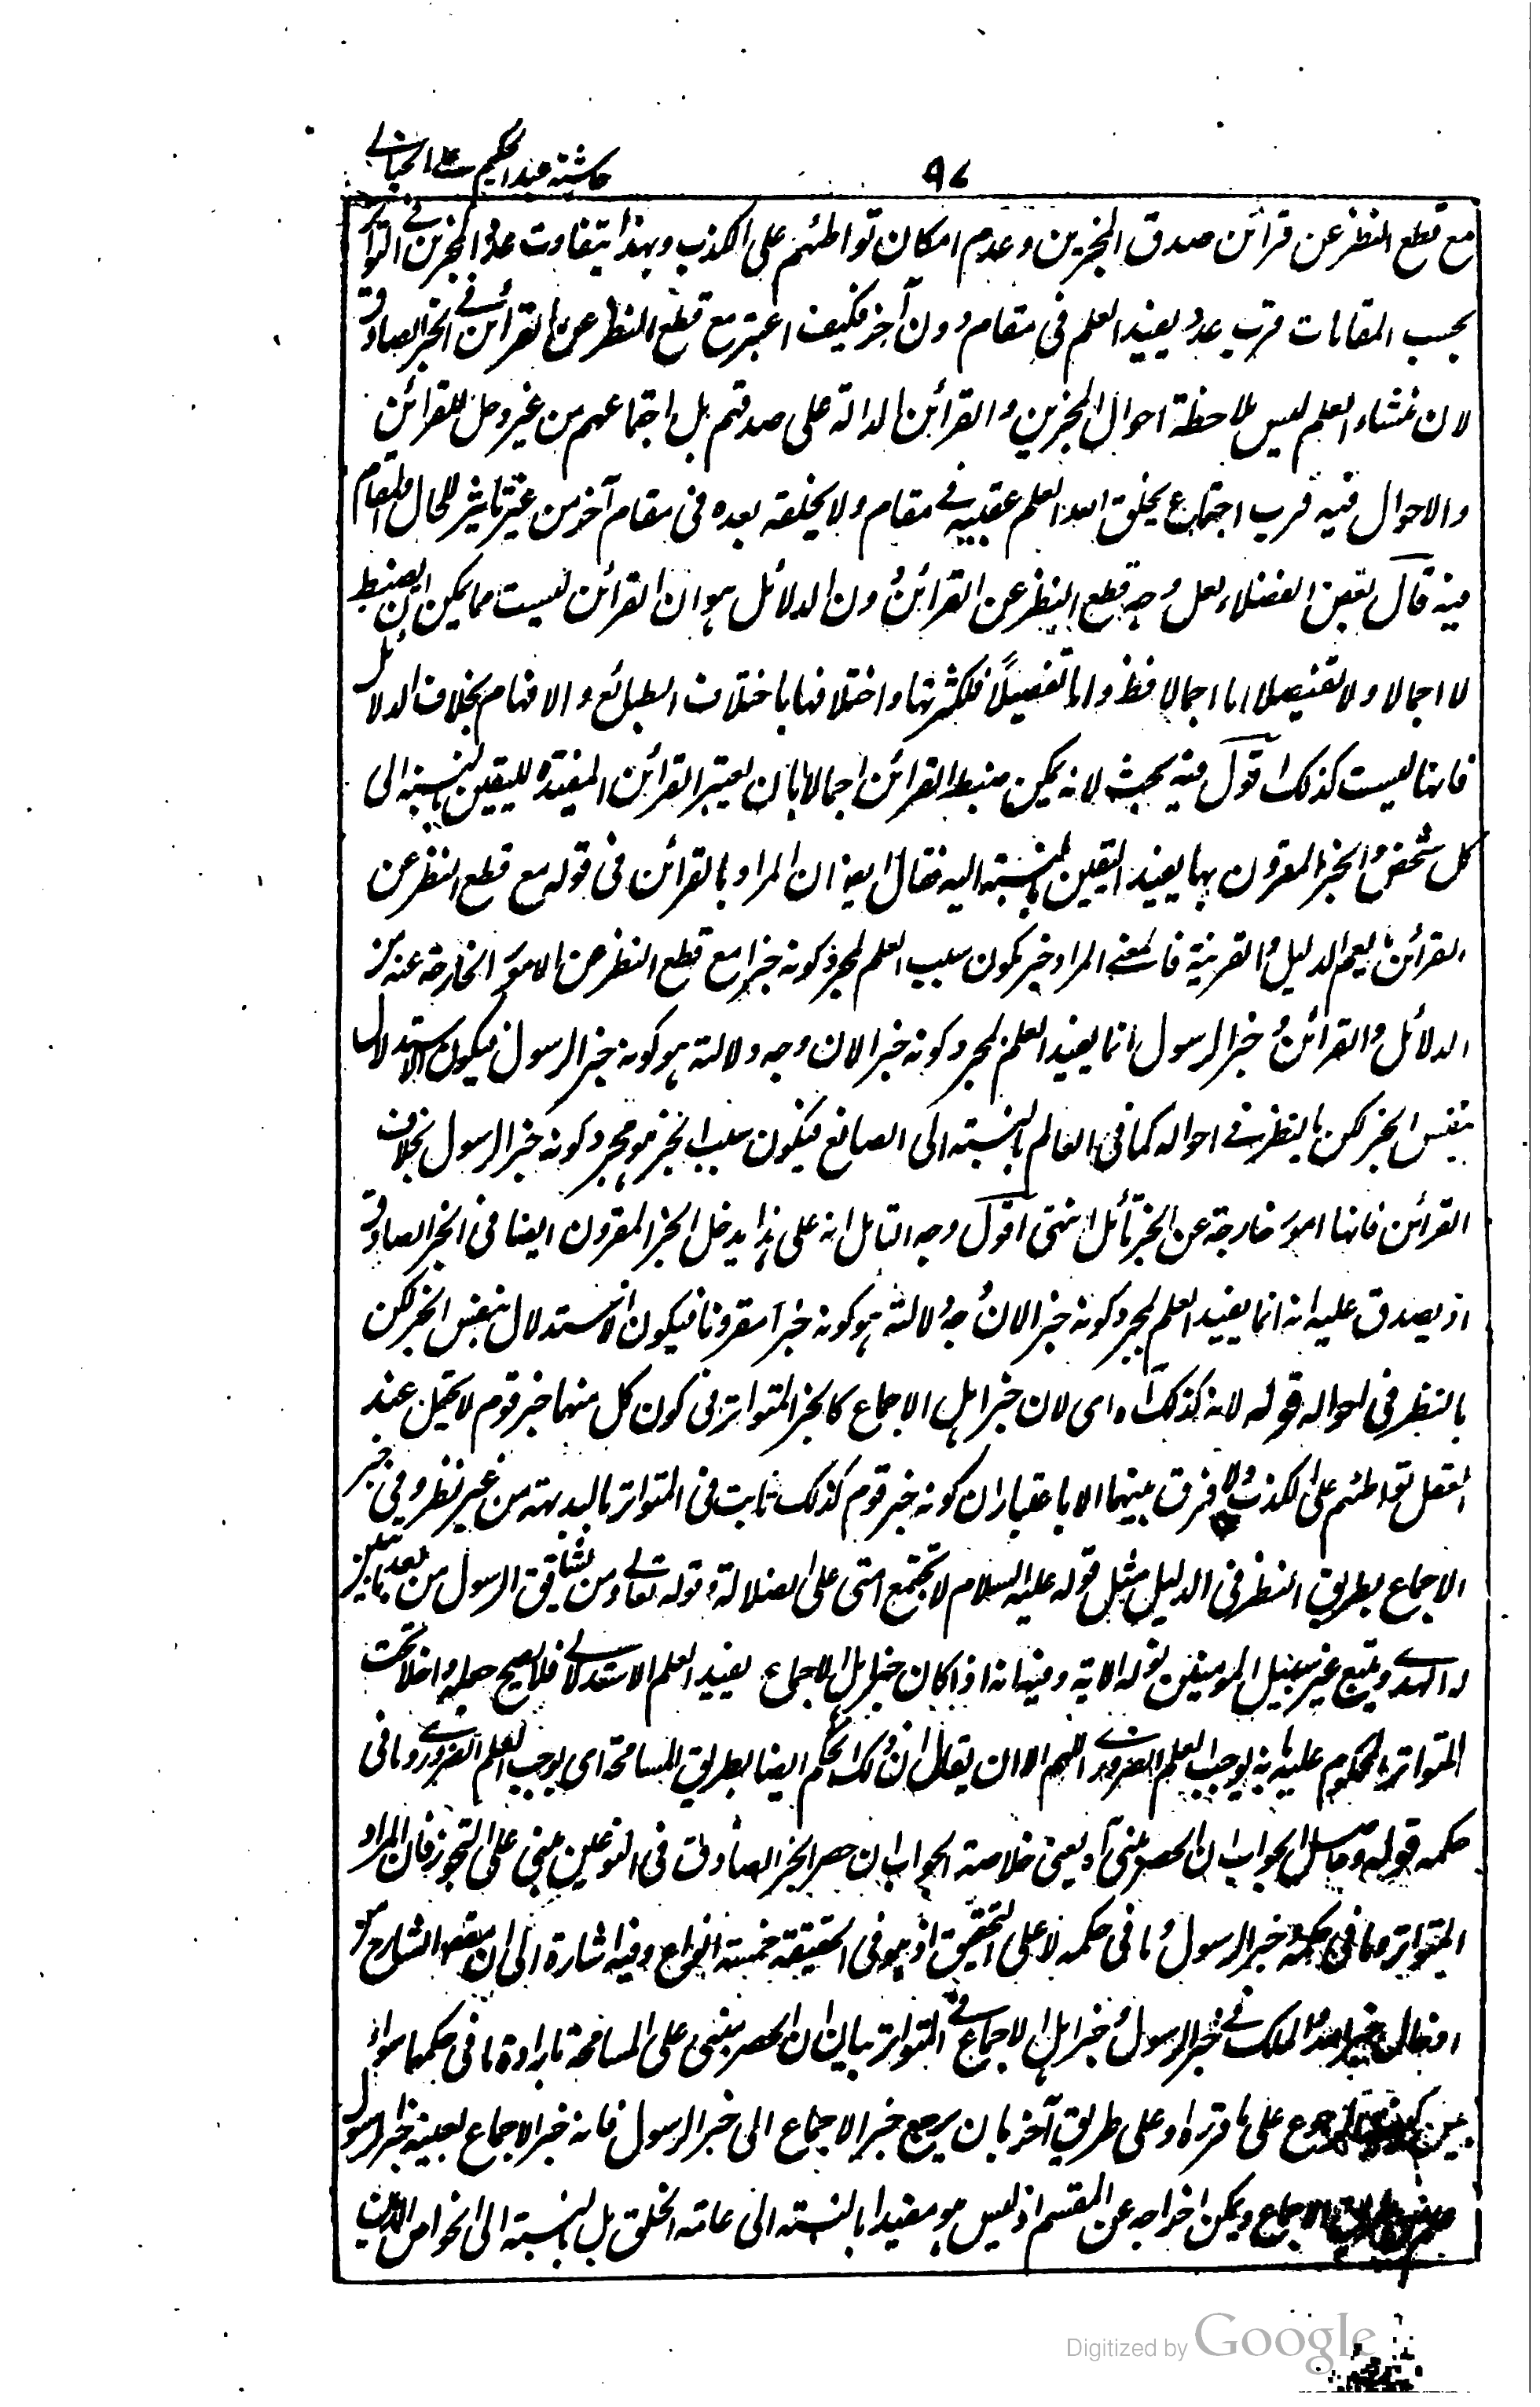 حاشیته عبد الحکیم علی الخیالی
٩٧
مع قطع النظر عن قرائن صدق المخبرین و عدم امکان تواطئهم علی الکذب و بهذا یتفاوت عدد المخبرین فی التواتر
بحسب المقامات فرب عدد یفید العلم فی مقام دون آخر فکیف اعتبر مع قطع النظر عن القرائن فی الخبر الصادق
لان منشاء العلم لیس ملاحظة احوال المخبرین و القرائن الدالة علی صدقهم بل اجتماعهم من غیر دخل للقرائن
و الاحوال فیه فرب اجتماع یخلق الله العلم عقیبه فی مقام و لا یخلقه بعده فی مقام آخر من غیر تاثیر للحال و المقام
فیه قال بعض الفضلاء لعل وجه قطع النظر عن القرائن دون الدلائل هو ان القرائن لیست مما یمکن ان یضبط
لا اجمالا و لا تفصیلا اما اجمالا فظ و اما تفصیلاً فلکثرتها و اختلافها باختلاف الطبائع و الافهام بخلاف الدلائل
فانها لیست کذلک اقول فیه بحث لانه یمکن ضبط القرائن اجمالا بان یعتبر القرائن المفیدة للیقین بالنسبة الی
کل شخص و الخبر المقرون بها یفید الیقین بالنسبة الیه فقال ایض ان المراد بالقرائن فی قوله مع قطع النظر عن
القرائن ما یعم الدلیل و القرینة فالمعنی المراد خبر یکون سبب العلم لمجرد کونه خبرا مع قطع النظر عن الامور الخارجة عنه من
الدلائل و القرائن و خبر الرسول انما یفید العلم لمجرد کونه خبرا لان وجه دلالته هو کونه خبر الرسول فیکون الاستدلال
بنفس الخبر لکن بالنظر فی احواله کما فی العالم بالنسبة الی الصانع فیکون سبب الخبر هو مجرد کونه خبر الرسول بخلاف
القرائن فانها امور خارجة عن الخبر تأمل انتهی اقول وجه التامل انه علی هذا یدخل الخبر المقرون ایضا فی الخبر الصادق
اذ یصدق علیه انه انما یفید العلم لمجرد کونه خبرا لان وجه دلالته هو کونه خبرا مقرونا فیکون الاستدلال بنفس الخبر لکن
بالنظر فی احواله قوله لانه کذلک آه ای لان خبر اهل الاجماع کالخبر المتواتر فی کون کل منهما خبر قوم لا یحتمل عند
العقل تواطئهم علی الکذب و لا فرق بینهما الا باعتبار ان کونه خبر قوم کذلک ثابت فی المتواتر بالبدیهته من غیر نظر و فی خبر
الاجماع بطریق النظر فی الدلیل مثل قوله علیه السلام لا تجتمع امتی علی الضلالة و قوله تعالی و من یشاقق الرسول من بعد ما تبین
له الهدی و یتبع غیر سبیل المومنین نوله الایة و فیه انه اذا کان خبر اهل الاجماع یفید العلم الاستدلالی فلا یصح جعله داخلا تحت
المتواتر المحکوم علیه بانه یوجب العلم الضروری اللهم الا ان یقال ان ذلک الحکم ایضا بطریق المسامحة ای یوجب العلم الضروری و ما فی
حکمه قوله و حاصل الجواب ان الحصر مبنی آه یعنی خلاصة الجواب ان حصر الخبر الصادق فی النوعین مبنی علی التجوز فان المراد
المتواتر و ما فی حکمه و خبر الرسول و ما فی حکمه لا علی التحقیق اذ هو فی الحقیقة خمسة انواع و فیه اشارة الی ان مقصود الشارح من
ادخال خبر الله و الملک فی خبر الرسول و خبر اهل الاجماع فی المتواتر بیان ان الحصر مبنی علی المسامحة بارادة ما فی حکمهما سواء
بین علی ما قرره او علی طریق آخر بان یرجع خبر الاجماع الی خبر الرسول فانه خبر الاجماع بعینه خبر الرسول
الاجماع و یمکن اخراجه عن المقسم اذ لیس هو مفیدا بالنسبة الی عامة الخلق بل بالنسبة الی الخواص الذین
Digitized by Google